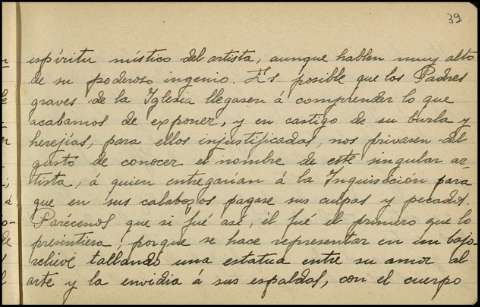 39
espíritu místico del artista, aunque hablen muy alto
de su poderoso ingenio. Es posible que los Padres
graves de la Iglesia llegasen á comprender lo que
acabamos de exponer, y en castigo de su burla y
herejías, para ellos injustificadas, nos privasen del
gusto de conocer el nombre de este singular ar-
tista, á quien entregarían á la Inquisición para
que en sus calabozos pagase sus culpas y pecados.
Parécenos que si fué así, él fué el primero que lo
presintiera, porque se hace representar en un bajo-
relieve tallando una estatua entre su amor al
arte y la envidia á sus espaldas, con el cuerpo